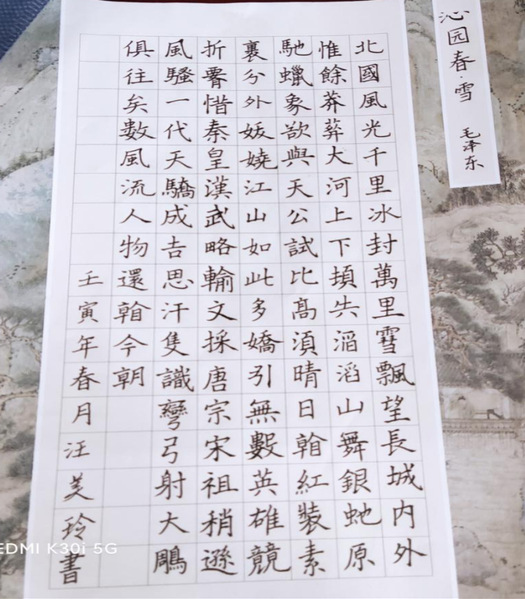 沁园春·雪
毛泽东
北國風光千里冰封萬里雪飄望長城内外
惟餘莽莽大河上下頓失滔滔山舞銀虵原
馳蠟象欲與天公試比高須晴日看紅裝素
裹分外妖嬈江山如此多嬌引無數英雄競
折腰惜秦皇漢武略輸文採唐宗宋祖稍遜
風騷一代天驕成吉思汗隻識彎弓射大鵰
俱往矣數風流人物還看今朝
壬寅年春月汪美玲書
EDMI K30i 5G